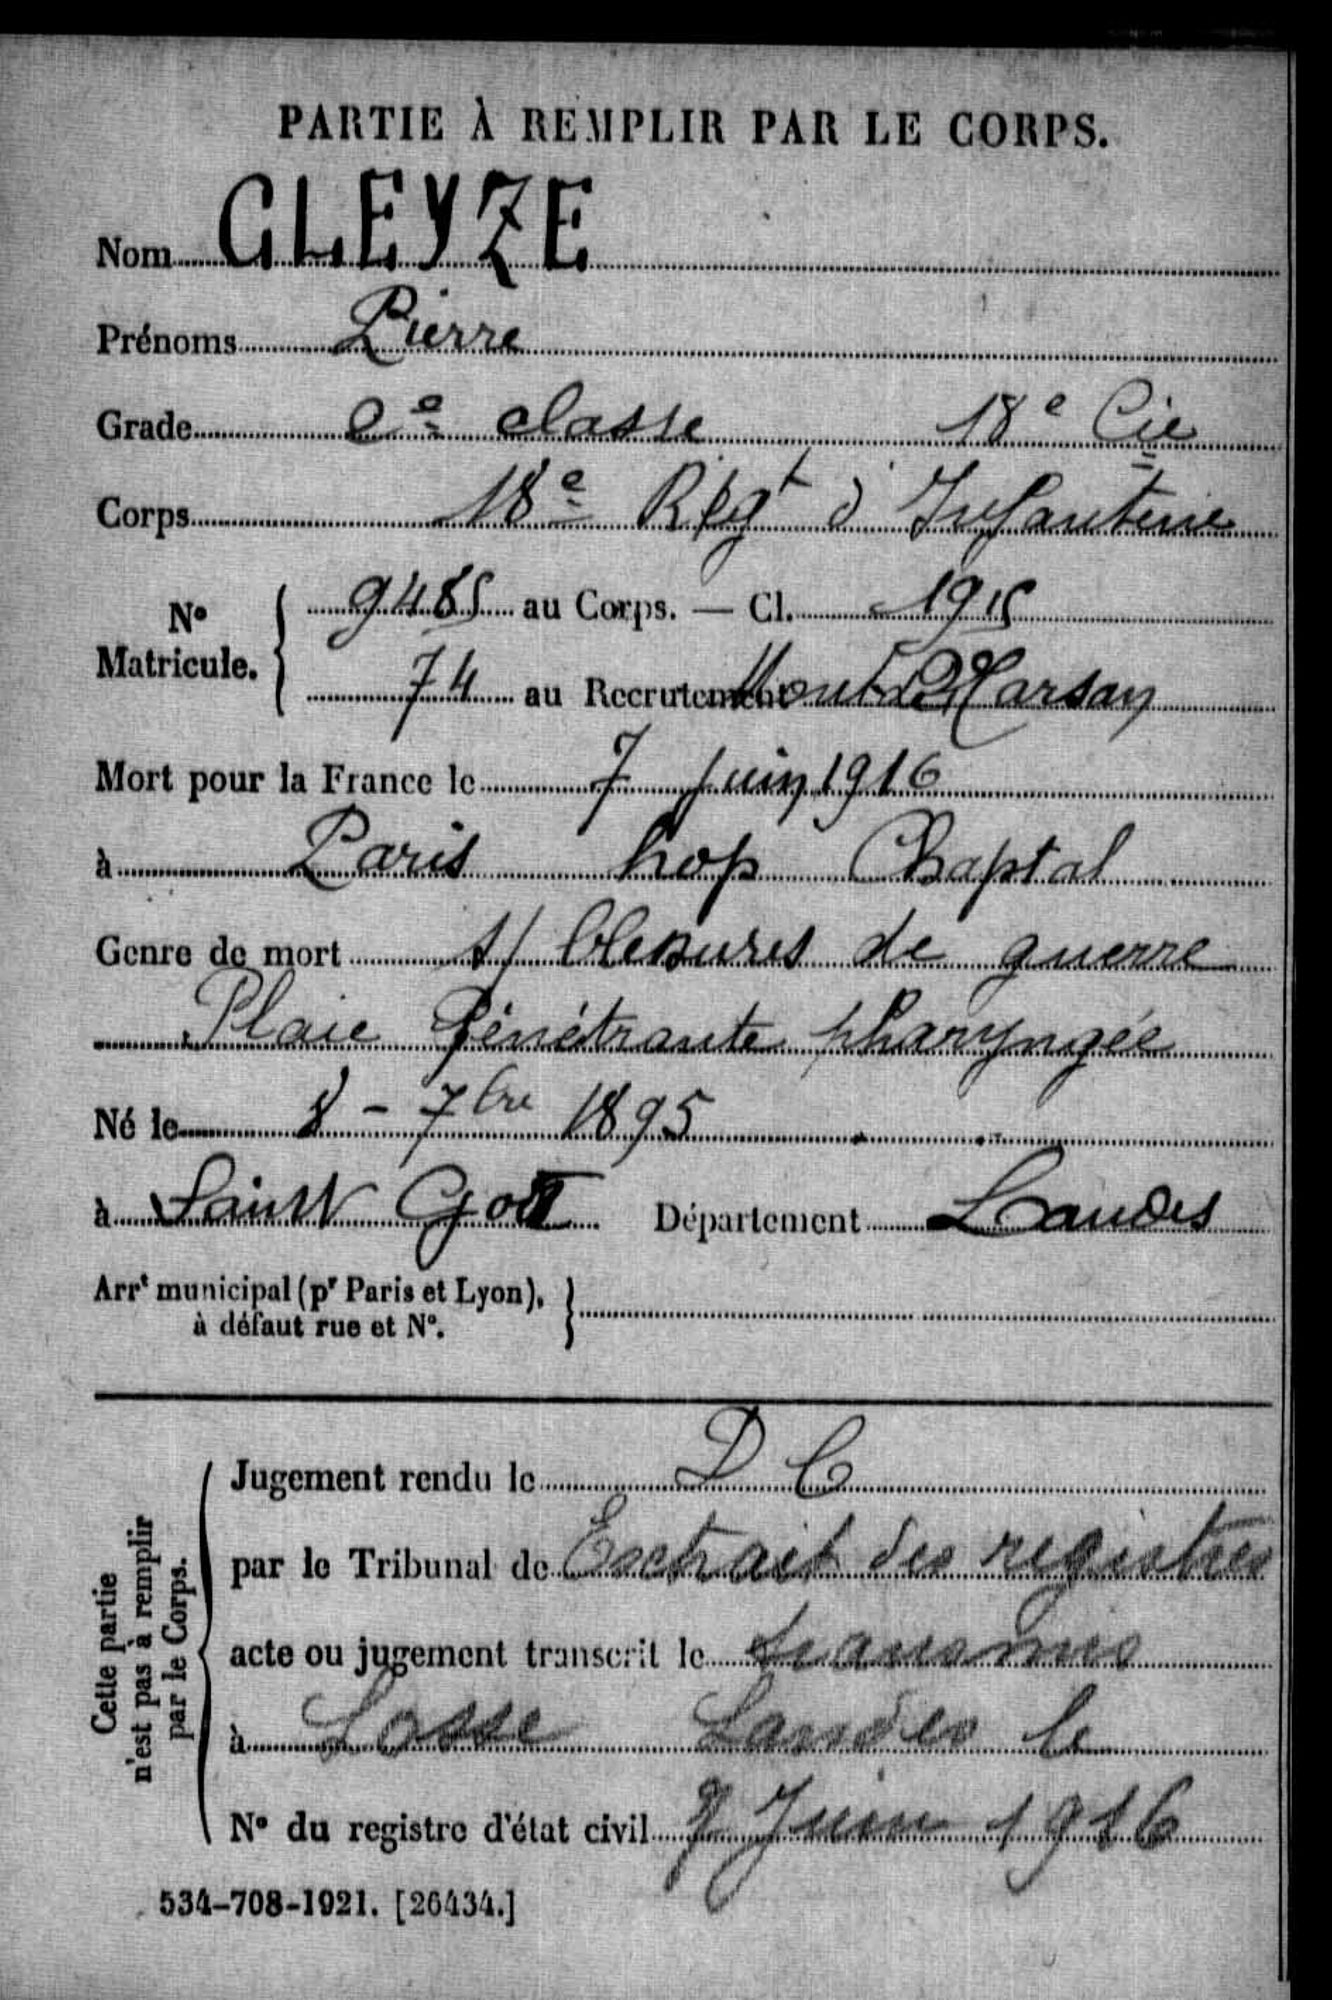 PARTIE À REMPLIR PAR LE CORPS.
Nom GLEYZE
Prénoms Pierre
Grade 2e classe 18e Cie
Corps 18e Regt d'Infanterie
No Matricule. { 9485 au Corps. — Cl. 1915
74 au Recrutement Mont de Marsan
Mort pour la France le 7 Juin 1916
à Paris hop Chaptal
Genre de mort s/ blessures de guerre
Plaie Pénétrante pharyngée
Né le 8 - 7bre 1895
à Saint Gor Département Landes
Arrt municipal (pr Paris et Lyon),
à défaut rue et No.
Cette partie
n'est pas à remplir
par le Corps.
Jugement rendu le D C
par le Tribunal de Extrait des registres
acte ou jugement transcrit le transmis
à Losse Landes le
No du registre d'état civil 7 Juin 1916
534-708-1921. [26434.]